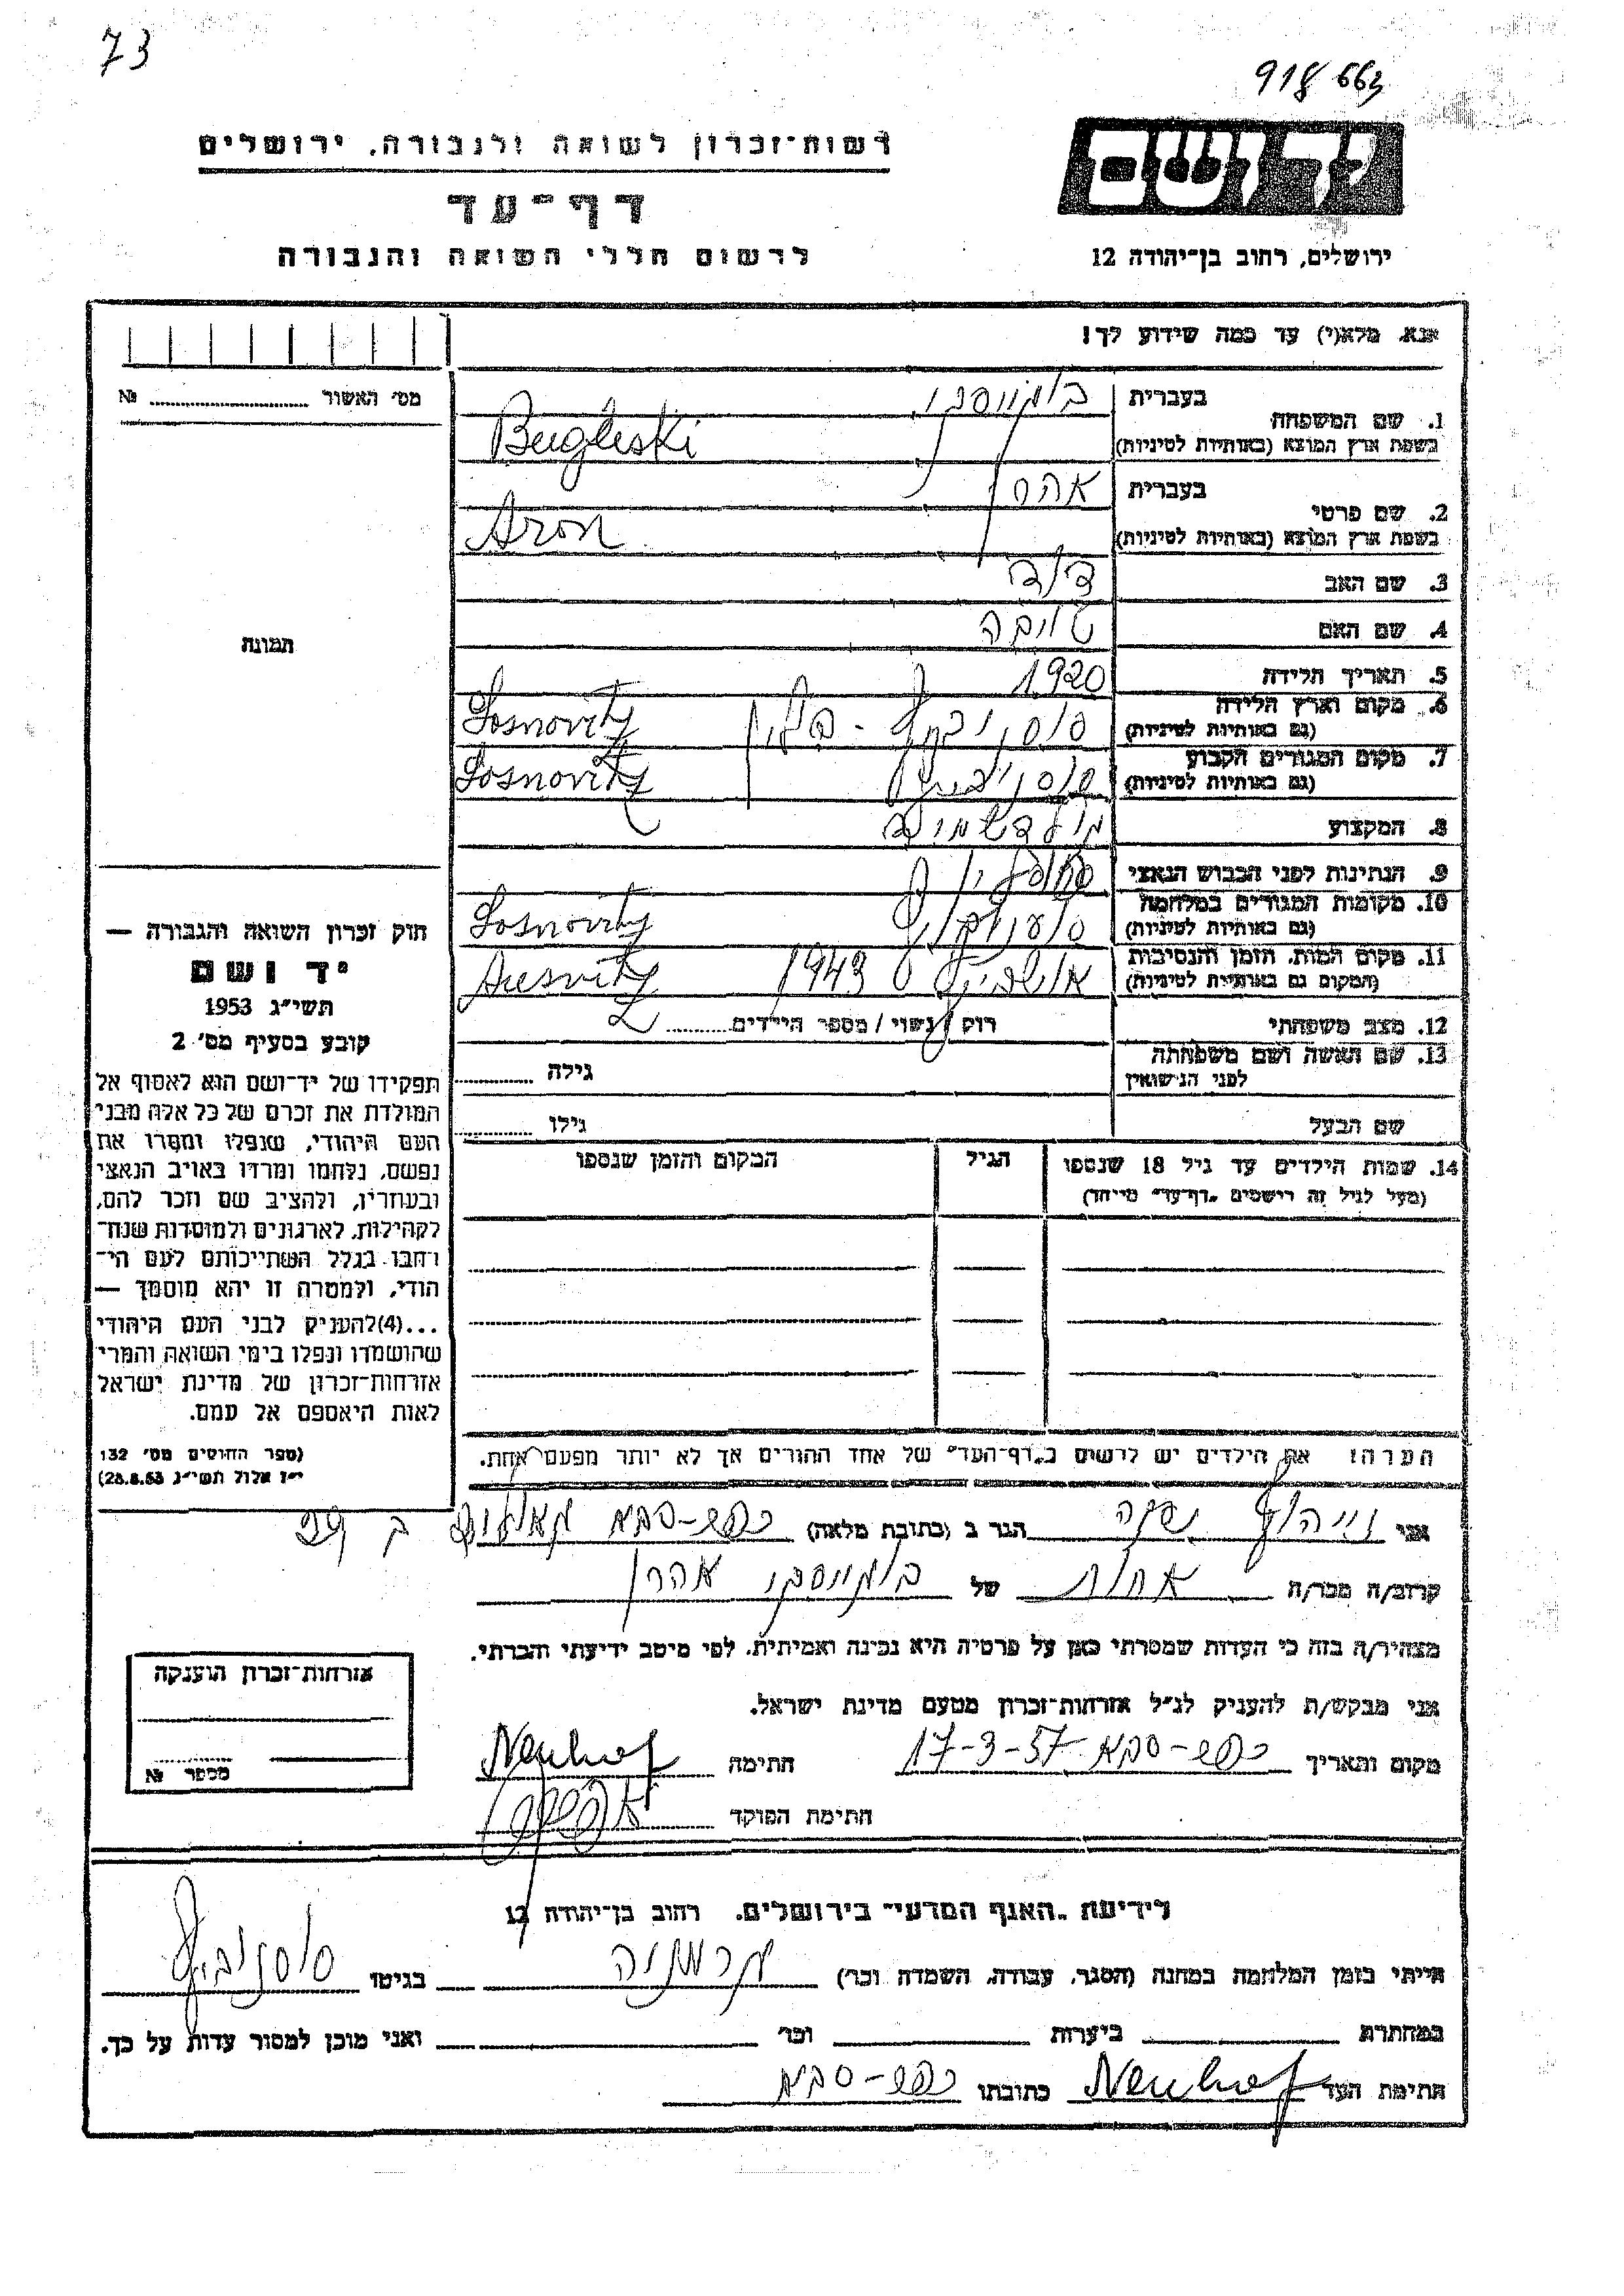 73
918663
רשות־זכרון לשואה ולגבורה, ירושלים
דף־עד
לרשום חללי השואה והגבורה
יד ושם
ירושלים, רחוב בן־יהודה 12
אנא, מלא(י) עד כמה שידוע לך!
מס׳ האשור № 
1. שם המשפחה
בעברית
בשפת ארץ המוצא (באותיות לטיניות) Bugleski
2. שם פרטי
בעברית אהרן
בשפת ארץ המוצא (באותיות לטיניות) Aron
3. שם האב דוד
4. שם האם טויבה
5. תאריך הלידה 1920
6. מקום וארץ הלידה
(גם באותיות לטיניות) סוסנוביץ - פולין Sosnovitz
7. מקום המגורים הקבוע
(גם באותיות לטיניות) סוסנוביץ Sosnovitz
8. המקצוע
9. הנתינות לפני הכבוש הנאצי
10. מקומות המגורים במלחמה
(גם באותיות לטיניות) Sosnovitz
11. מקום המות, הזמן והנסיבות
(המקום גם באותיות לטיניות) אושביץ 1943 Ausvitz
12. מצב משפחתי רווק / נשוי / מספר הילדים
13. שם האשה ושם משפחתה
לפני הנישואין גילה
שם הבעל גילו
תמונה
חוק זכרון השואה והגבורה —
יד ושם
תשי״ג 1953
קובע בסעיף מס׳ 2
תפקידו של יד־ושם הוא לאסוף אל
המולדת את זכרם של כל אלה מבני
העם היהודי, שנפלו ומסרו את
נפשם, נלחמו ומרדו באויב הנאצי
ובעוזריו, ולהציב שם וזכר להם,
לקהילות, לארגונים ולמוסדות שנח־
רבו בגלל השתייכותם לעם הי־
הודי, ולמטרה זו יהא מוסמך —
...(4) להעניק לבני העם היהודי
שהושמדו ונפלו בימי השואה והמרי
אזרחות־זכרון של מדינת ישראל
לאות היאספם אל עמם.
(ספר החוקים מס׳ 132
י״ז אלול תשי״ג 28.8.53)
14. שמות הילדים עד גיל 18 שנספו
(מעל לגיל זה רישמים „דף־עד״ מייחד)
הגיל
המקום והזמן שנספו
הערה: את הילדים יש לרשום ב„דף־העד״ של אחד ההורים אך לא יותר מפעם אחת.
אני הגר ב (כתובת מלאה) כפר-סבא
קרוב/ה מכר/ה אחות של אהרן
מצהיר/ה בזה כי העדות שמסרתי כאן על פרטיה היא נכונה ואמיתית, לפי מיטב ידיעתי והכרתי.
אני מבקש/ת להעניק לנ״ל אזרחות־זכרון מטעם מדינת ישראל.
מקום ותאריך כפר-סבא 17-3-57 חתימה Neuhof
חתימת הפוקד
אזרחות־זכרון הוענקה
מספר №
לידיעת „האגף המדעי״ בירושלים, רחוב בן־יהודה 12
הייתי בזמן המלחמה במחנה (הסגר, עבודה, השמדה וכו׳) גרמניה בגיטו סוסנוביץ
במחתרת ביערות וכו׳ ואני מוכן למסור עדות על כך.
חתימת העד Neuhof כתובתו כפר-סבא